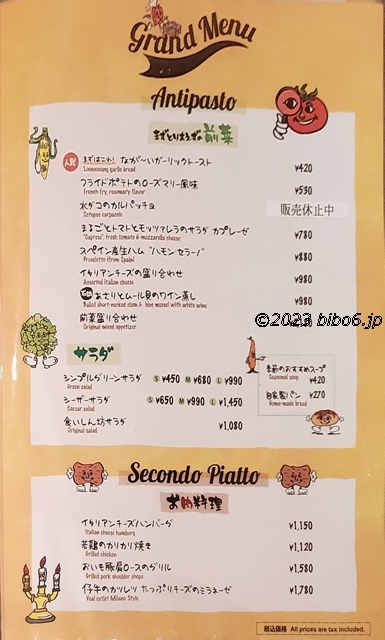 Grand Menu
Antipasto
まずとりあえずの前菜
人気 まずはこれ! なが〜いガーリックトースト ¥420
Looooooong garlic bread
フライドポテトのローズマリー風味 ¥530
French fry, rosemary flavor
水ダコのカルパッチョ 販売休止中
Octopus carpaccio
まるごとトマトとモッツァレラのサラダ カプレーゼ ¥780
"Caprese", fresh tomato & mozzarella cheese
スペイン産生ハム "ハモンセラーノ" ¥880
Prosciutto (from Spain)
イタリアンチーズの盛り合わせ ¥980
Assorted italian cheese
あさりとムール貝のワイン蒸し ¥980
Boiled short-necked clam & blue mussel with white wine
前菜盛り合わせ
Original mixed appetizer
©2023 bibo6.jp/
サラダ
シンプルグリーンサラダ S ¥450 M ¥680 L ¥990
Green salad
シーザーサラダ S ¥650 M ¥990 L ¥1,450
Caesar salad
食いしん坊サラダ ¥1,080
Original salad
季節のおすすめスープ
Seasonal soup ¥420
自家製パン ¥270
Home-made bread
Secondo Piatto
お肉料理
イタリアンチーズハンバーグ ¥1,150
Italian cheese hamburg
若鶏のカリカリ焼き ¥1,120
Grilled chicken
おいも豚肩ロースのグリル ¥1,580
Grilled pork shoulder chops
仔牛のカツレツ たっぷりチーズのミラネーゼ ¥1,780
Veal cutlet Milano Style
税込価格 All prices are tax included.